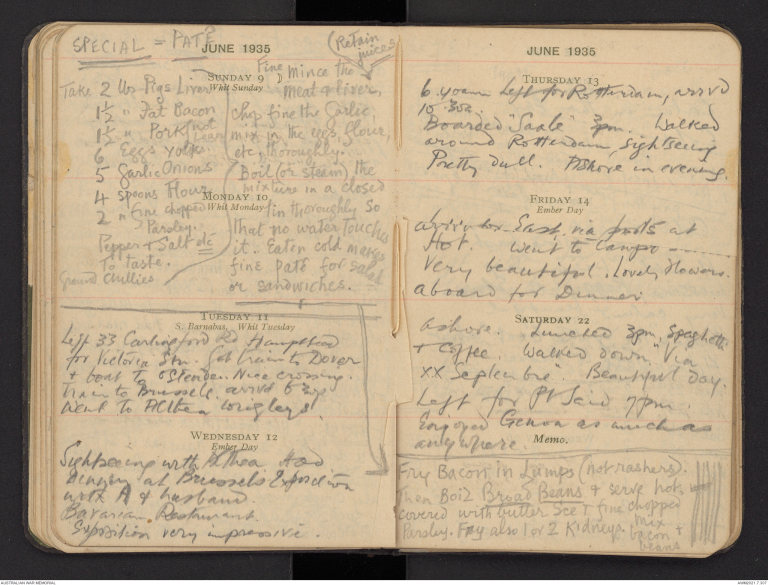 SPECIAL = PATÉ
(Retain juices
JUNE 1935
SUNDAY 9
Whit Sunday
Take 2 lbs Pigs Liver
1½ " Fat Bacon
1½ " Pork (not lean
6 Eggs Yolks
5 Garlic Onions
4 spoons Flour
2 " fine chopped
Parsley.
Pepper & Salt etc
to taste.
Ground chillies
Fine mince the
meat & liver,
chop fine the Garlic,
mix in the eggs, flour,
etc, thoroughly.
Boil (or steam) the
mixture in a closed
tin thoroughly so
that no water touches
it. Eaten cold makes
fine paté for salad
or sandwiches.
MONDAY 10
Whit Monday
TUESDAY 11
S. Barnabas, Whit Tuesday
Left 33 Carlingford Rd Hampstead
for Victoria Stn. Got train to Dover
& boat to Ostende. Nice crossing.
Train to Brussels. arrvd
Went to Althea Wrigleys
WEDNESDAY 12
Ember Day
Sightseeing with Althea. Had
Dinner at Brussels Exposition
with A & husband.
Bavarian Restaurant.
Exposition very impressive.
JUNE 1935
THURSDAY 13
Left for Rotterdam, arrvd
10.30a.
Boarded "Saale" 3pm. Walked
around Rotterdam, SightSeeing
Pretty dull. Ashore in evening.
FRIDAY 14
Ember Day
East via ports at
Hot. Went to Campo
Very beautiful. Lovely flowers.
aboard for Dinner
SATURDAY 22
Ashore. Lunched 3pm, Spaghetti
& Coffee. Walked down "Via
XX Septembre". Beautiful day.
Left for Pt Said 7pm.
Enjoyed Genoa as much as
anywhere.
Memo.
Fry Bacon in Lumps (not rashers).
Then Boil Broad Beans & serve hot,
covered with butter. See T fine chopped
Parsley. Fry also 1 or 2 Kidneys. mix
bacon &
beans
AUSTRALIAN WAR MEMORIAL